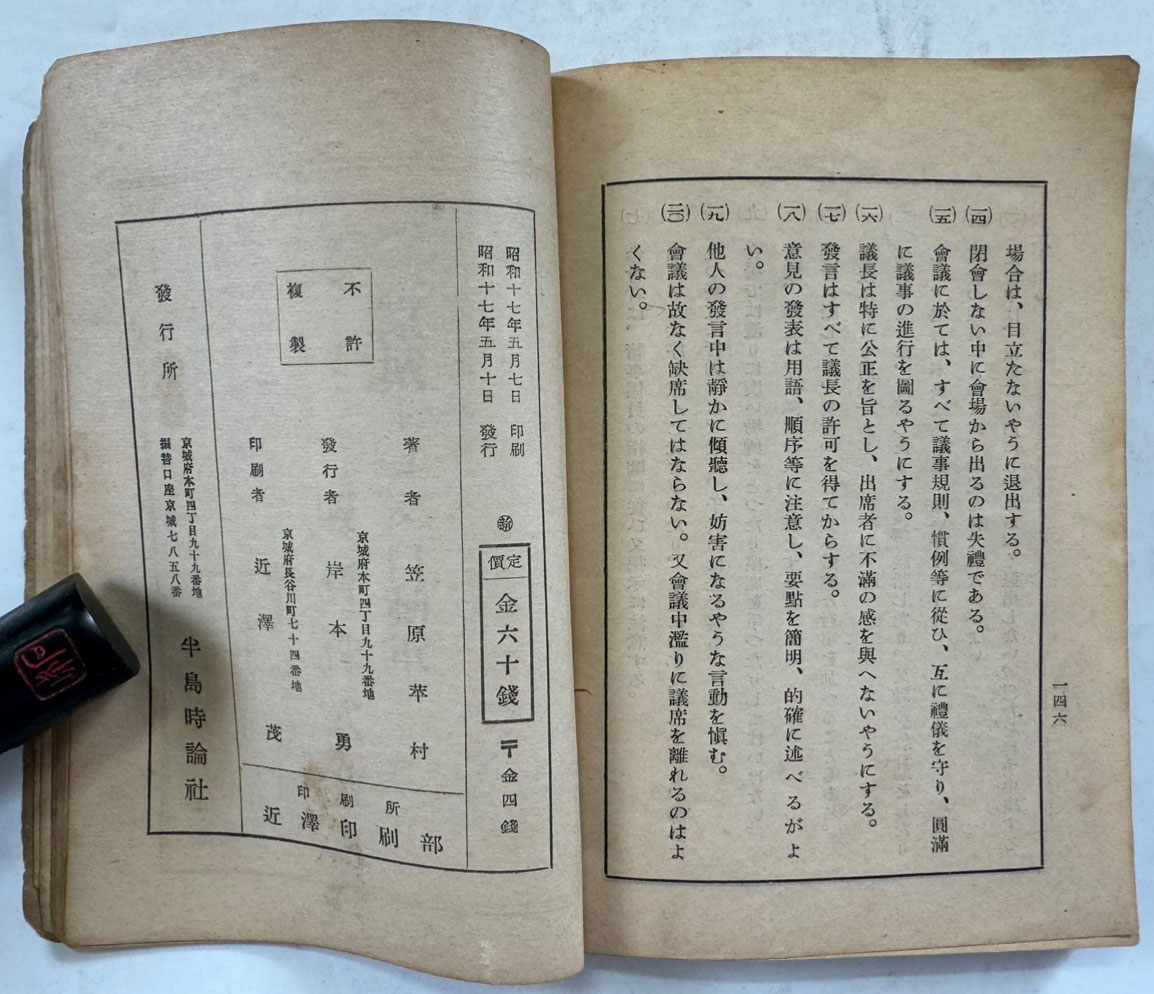 場合は、目立たないやうに退出する。
(一四) 閉會しない中に會場から出るのは失禮である。
(一五) 會議に於ては、すべて議事規則、慣例等に從ひ、互に禮儀を守り、圓滿
に議事の進行を圖るやうにする。
(一六) 議長は特に公正を旨とし、出席者に不滿の感を與へないやうにする。
(一七) 發言はすべて議長の許可を得てからする。
(一八) 意見の發表は用語、順序等に注意し、要點を簡明、的確に述べるがよ
い。
(一九) 他人の發言中は靜かに傾聽し、妨害になるやうな言動を愼む。
(二〇) 會議は故なく缺席してはならない。又會議中濫りに議席を離れるのはよ
くない。
一四六
昭和十七年五月七日 印刷
昭和十七年五月十日 發行
定價 金六十錢
〒金四錢
不許
複製
著者 笠原苹村
京城府本町四丁目九十九番地
發行者 岸本勇
京城府長谷川町七十四番地
印刷者 近澤茂
印刷所
近澤印刷部
發行所
京城府本町四丁目九十九番地
振替口座京城七八五八番
半島時論社